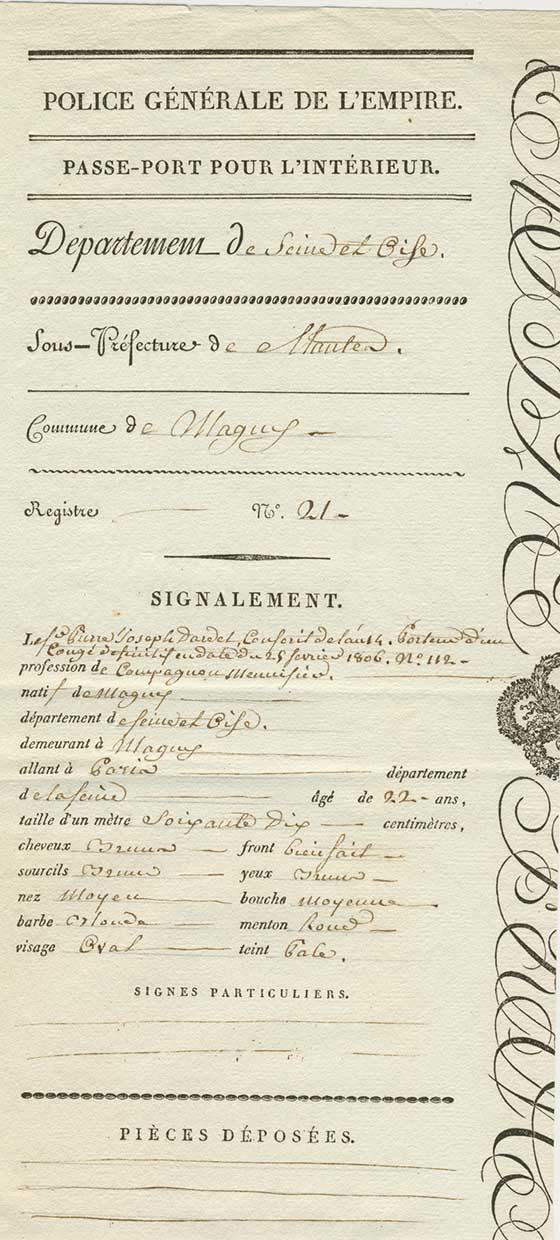 POLICE GÉNÉRALE DE L'EMPIRE.
PASSE-PORT POUR L'INTÉRIEUR.
Departement de Seine et Oise.
Sous-Préfecture de Mantes.
Commune de Magny
Registre N.° 21
SIGNALEMENT.
Le S.r Pierre Joseph Dardet, Conscrit de l'an 14. Porteur d'un
Congé définitif en date du 25 fevrier 1806. N.° 112
profession de Compagnon Menuisier.
natif de Magny
département de Seine et Oise.
demeurant à Magny
allant à Paris département
de la Seine âgé de 22 ans,
taille d'un mètre Soixante Dix centimètres,
cheveux Bruns front bienfait
sourcils Bruns yeux Bruns
nez Moyen bouche moyenne
barbe Blonde menton Rond
visage Oval teint Pale.
SIGNES PARTICULIERS.
PIÈCES DÉPOSÉES.